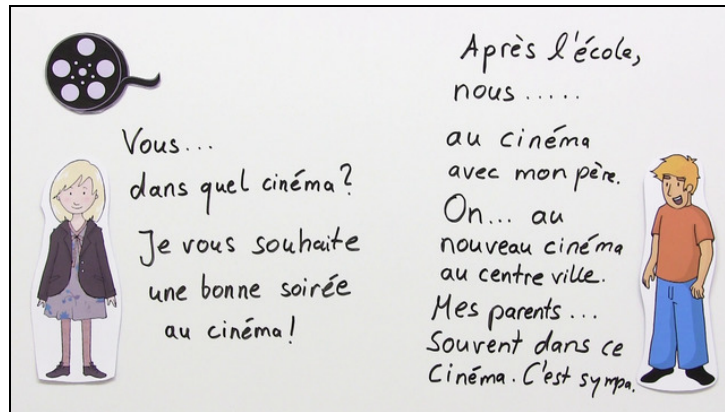 Vous...
dans quel cinéma?
Je vous souhaite
une bonne soirée
au cinéma!
Après l'école,
nous.....
au cinéma
avec mon père.
On... au
nouveau cinéma
au centre ville.
Mes parents...
Souvent dans ce
Cinéma. C'est sympa.